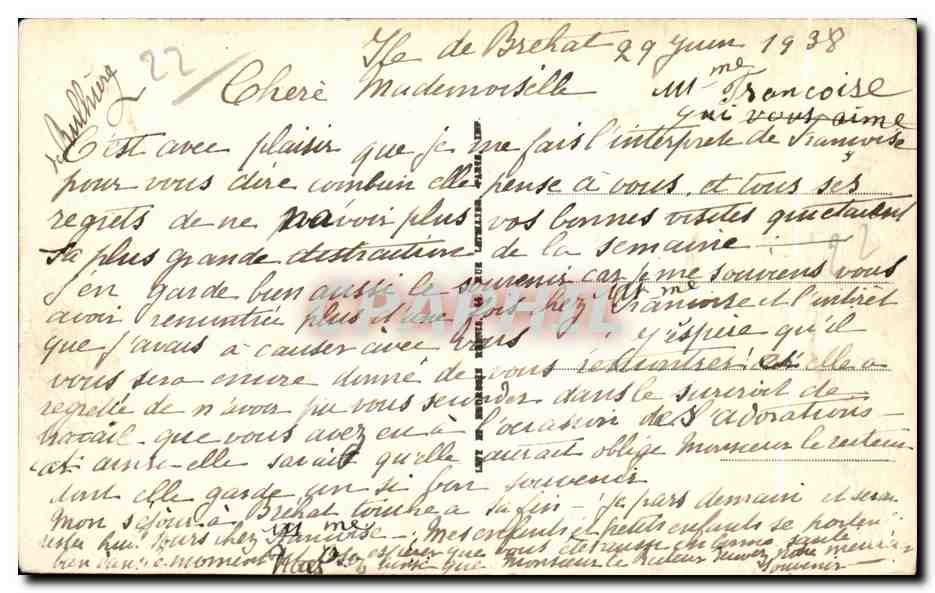 Ile de Brehat 29 Juin 1938
22
Chère Mademoiselle
Mme Françoise
qui vous aime
C'est avec plaisir que je me fais l'interprète de Françoise
pour vous dire combien elle pense à vous et tous ses
regrets de ne pavoir plus vos bonnes visites qui étaient
sa plus grande distraction de la semaine
J'en garde bien aussi le souvenir car je me souviens vous
avoir rencontrée plus d'une fois chez Mme Françoise et l'intérêt
que j'avais à causer avec vous J'espère qu'il
vous sera encore donné de vous rencontrer elle a
regretté de n'avoir pu vous seconder dans le surcroit de
travail que vous avez eu à l'occasion de l'adorations
ainsi elle savait qu'elle aurait obligé Monsieur le recteur
dont elle garde un si bon souvenir
Mon séjour à Brehat touche à sa fin - je pars demain et serai
jours chez Mme Françoise - Mes enfants et petits enfants se portent
bien dans ce moment espérer que vous êtes aussi en bonne santé
que Monsieur le Recteur notre meilleur
souvenir
PHIL